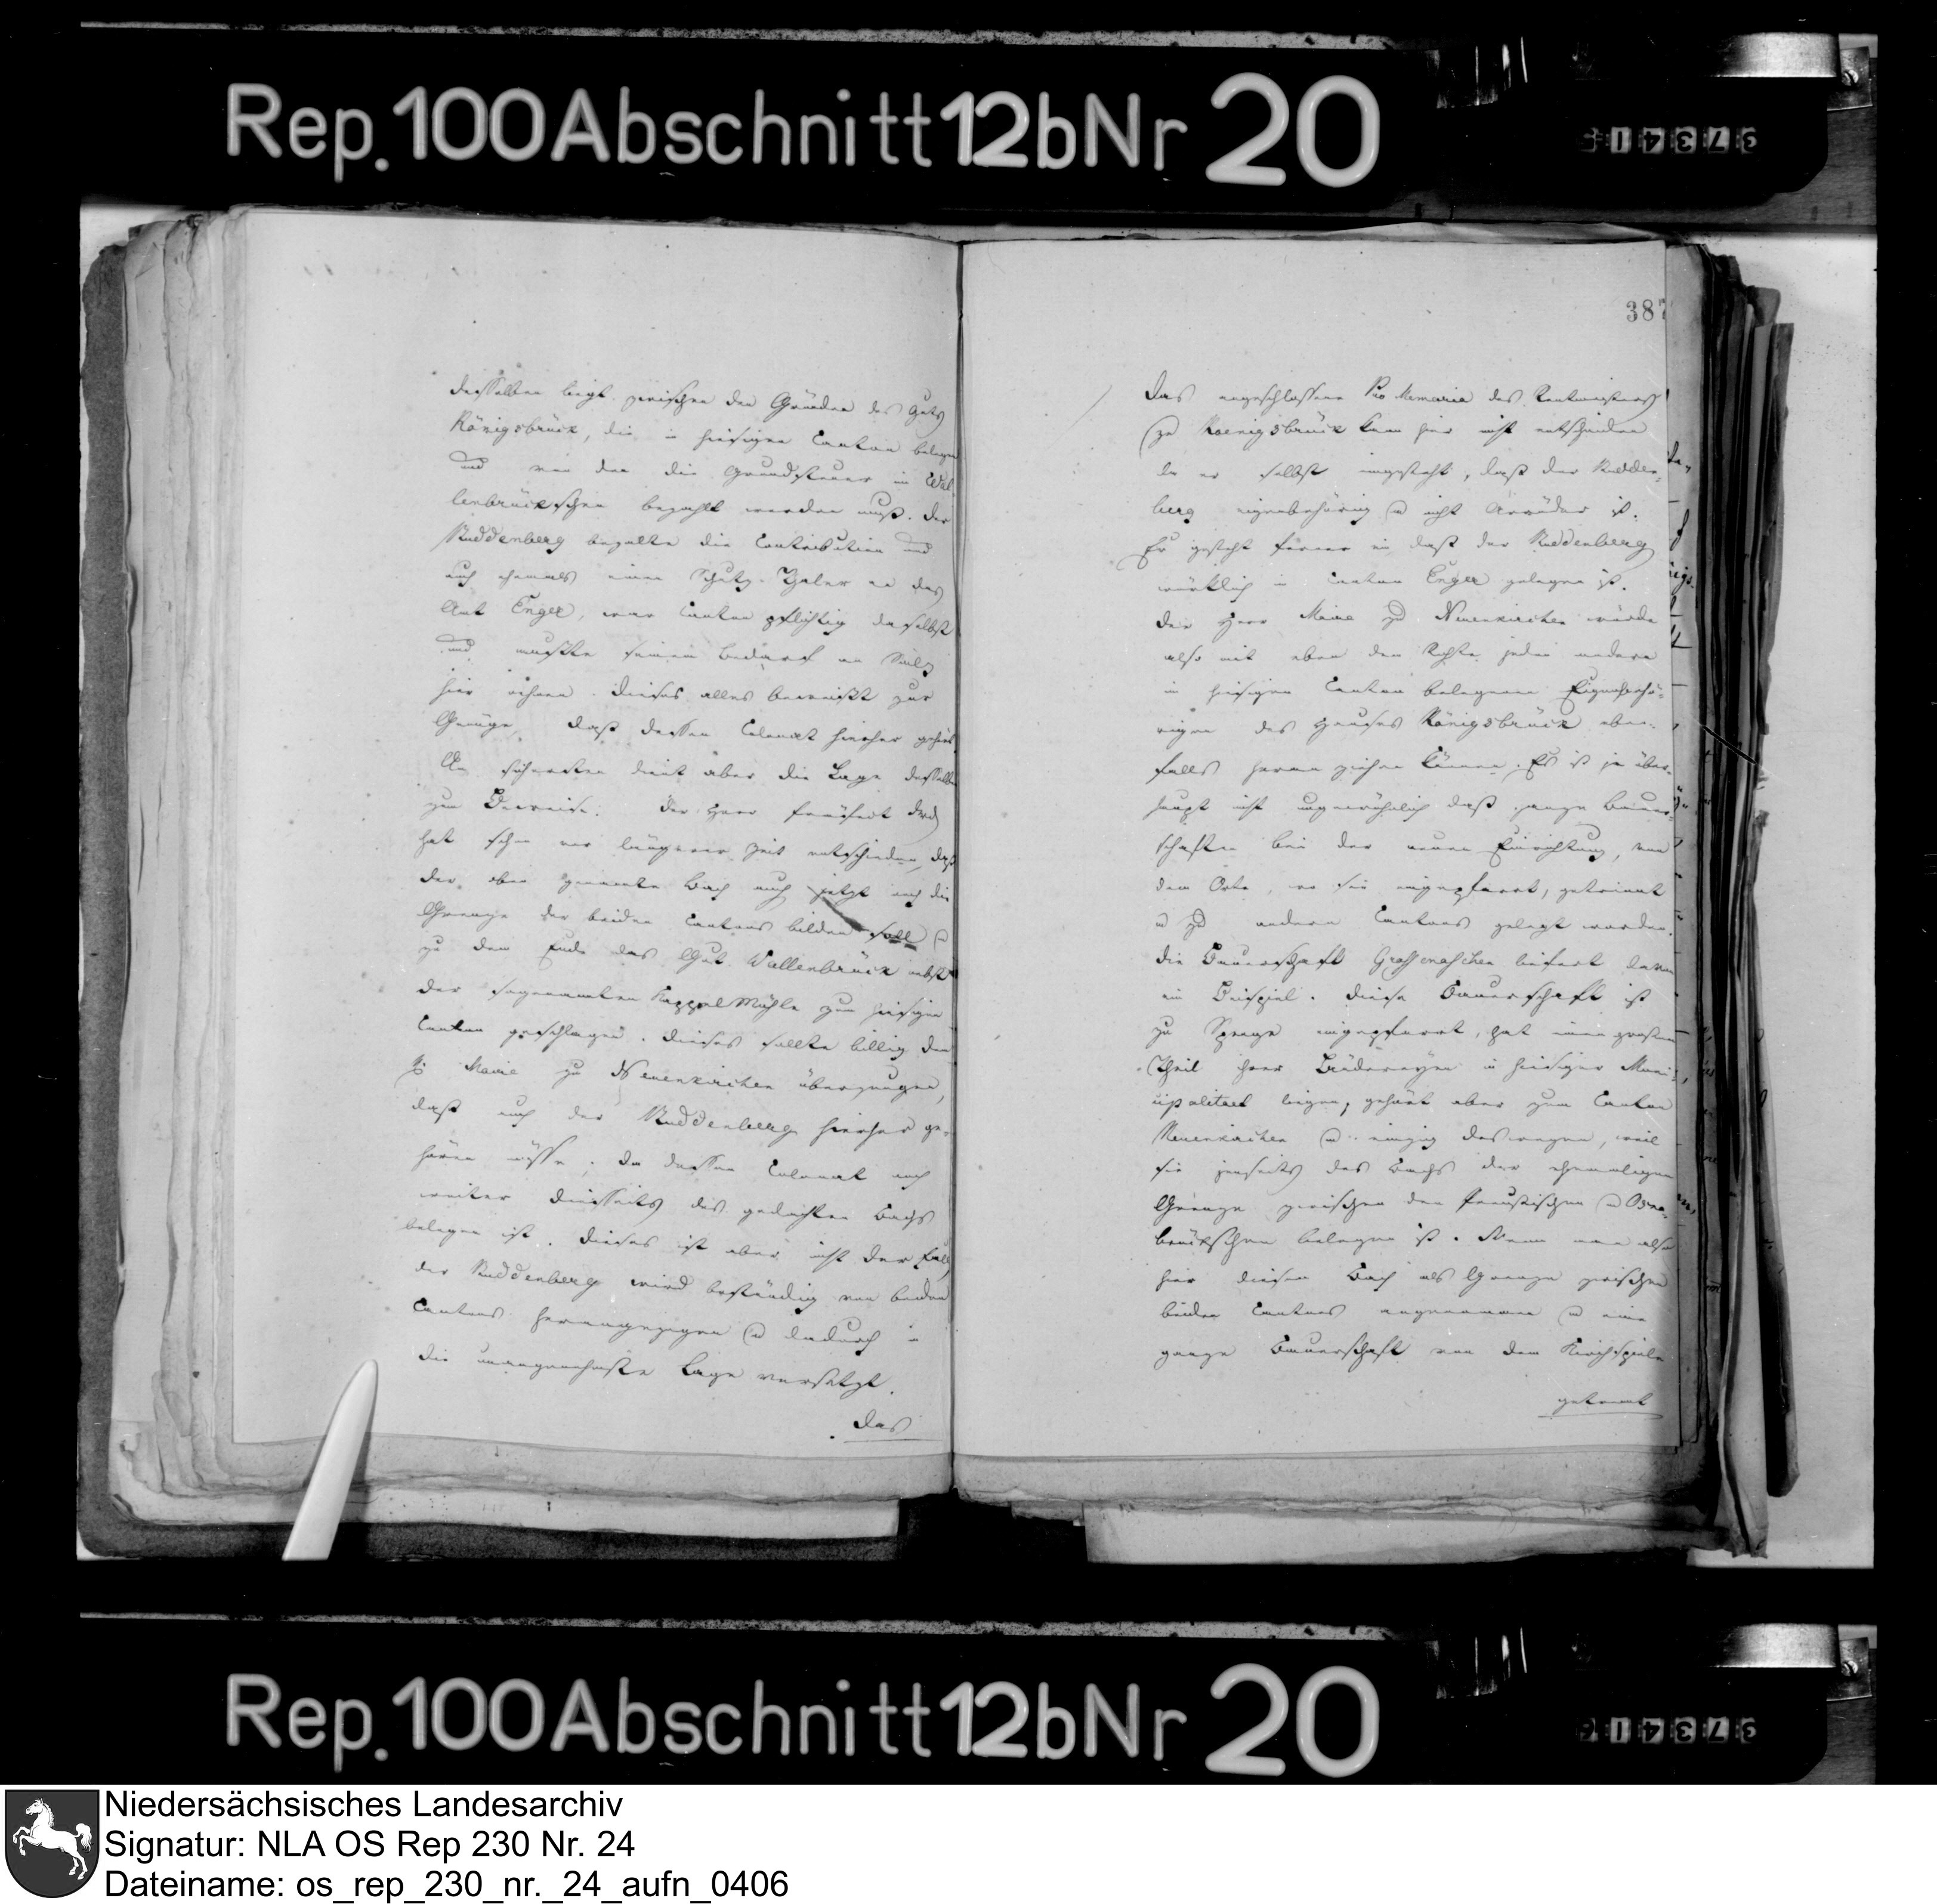 Rep. 100 Abschnitt 12b Nr 20
387
desselben liegt zwischen den Gründen des Guts
Königsbrück, die in hiesigen Canton belegen
und von den die Grundsteuer im Wal
lenbrückschen bezahlt werden muß. Der
Ruddenberg bezalte die Contribution und
auch ehemals einen Schutz-Thaler an das
Amt Enger, war Canton pflichtig daselbst
und mußte seinen Bedarf an Salz
hier nehmen. Dieses alles beweißt zur
Genüge, daß dessen Colonat hierher gehört
Am sichersten dient aber die Lage desselben
zum Beweise. Der Herr Praefect
hat schon vor längerer Zeit entschieden, daß
der oben genannte Bach auch jetzt noch die
Grenze der beiden Cantons bilden soll u
zu dem Ende das Gut Wallenbrück nebst
der sogenannten Kappel Mühle zum hiesigen
Canton geschlagen. Dieses sollte billig den
H. Maire zu Neuenkirchen überzeugen,
daß auch der Ruddenberg hierher ge-
hören müsse, da dessen Colonat noch
weiter diesseits des gedachten Bachs
belegen ist. Dieses ist aber nicht der Fall
der Ruddenberg wird beständig von beiden
Cantons herangezogen u dadurch in
die unangenehmste Lage versetzt.
Das
Das angeschlossene Pro Memoria des Rentmeisters
zu Koenigsbrück kann hier nicht entscheiden
da er selbst eingesteht, daß der Rudden-
berg eigenbehörig u nicht Heuerling ist.
Er gesteht ferner ein daß der Ruddenberg
würklich in Canton Enger gelegen ist.
Der Herr Maire zu Neuenkirchen würde
also mit eben dem Rechte jeden andern
in hiesigen Canton belegenen Eigenbehö-
rigen des Hauses Königsbrück eben-
falls heran ziehen können. Es ist ja über-
haupt nicht ungewöhnlich daß ganze Bauer-
schaften bei der neuen Einrichtung, von
dem Orte, wo sie eingepfarrt, getrennt
u zu andern Cantons gelegt worden.
die Bauerschaft Grossenaschen liefert davon
ein Beispiel. Diese Bauerschaft ist
zu Spenge eingepfarrt, hat einen großen
Theil ihrer Ländereyen in hiesiger Muni-
cipalitaet liegen, gehört aber zum Canton
Neuenkirchen u einzig deswegen, weil
sie jenseits des Bachs der ehemaligen
Grenze zwischen den Preußischen u Osna-
brückschen belegen ist. Wenn man also
hier diesen Bach als Grenze zwischen
beiden Cantons angenommen u eine
ganze Bauerschaft von dem Kirchspiele
getrennt
Rep. 100 Abschnitt 12b Nr 20
Niedersächsisches Landesarchiv
Signatur: NLA OS Rep 230 Nr. 24
Dateiname: os_rep_230_nr._24_aufn_0406